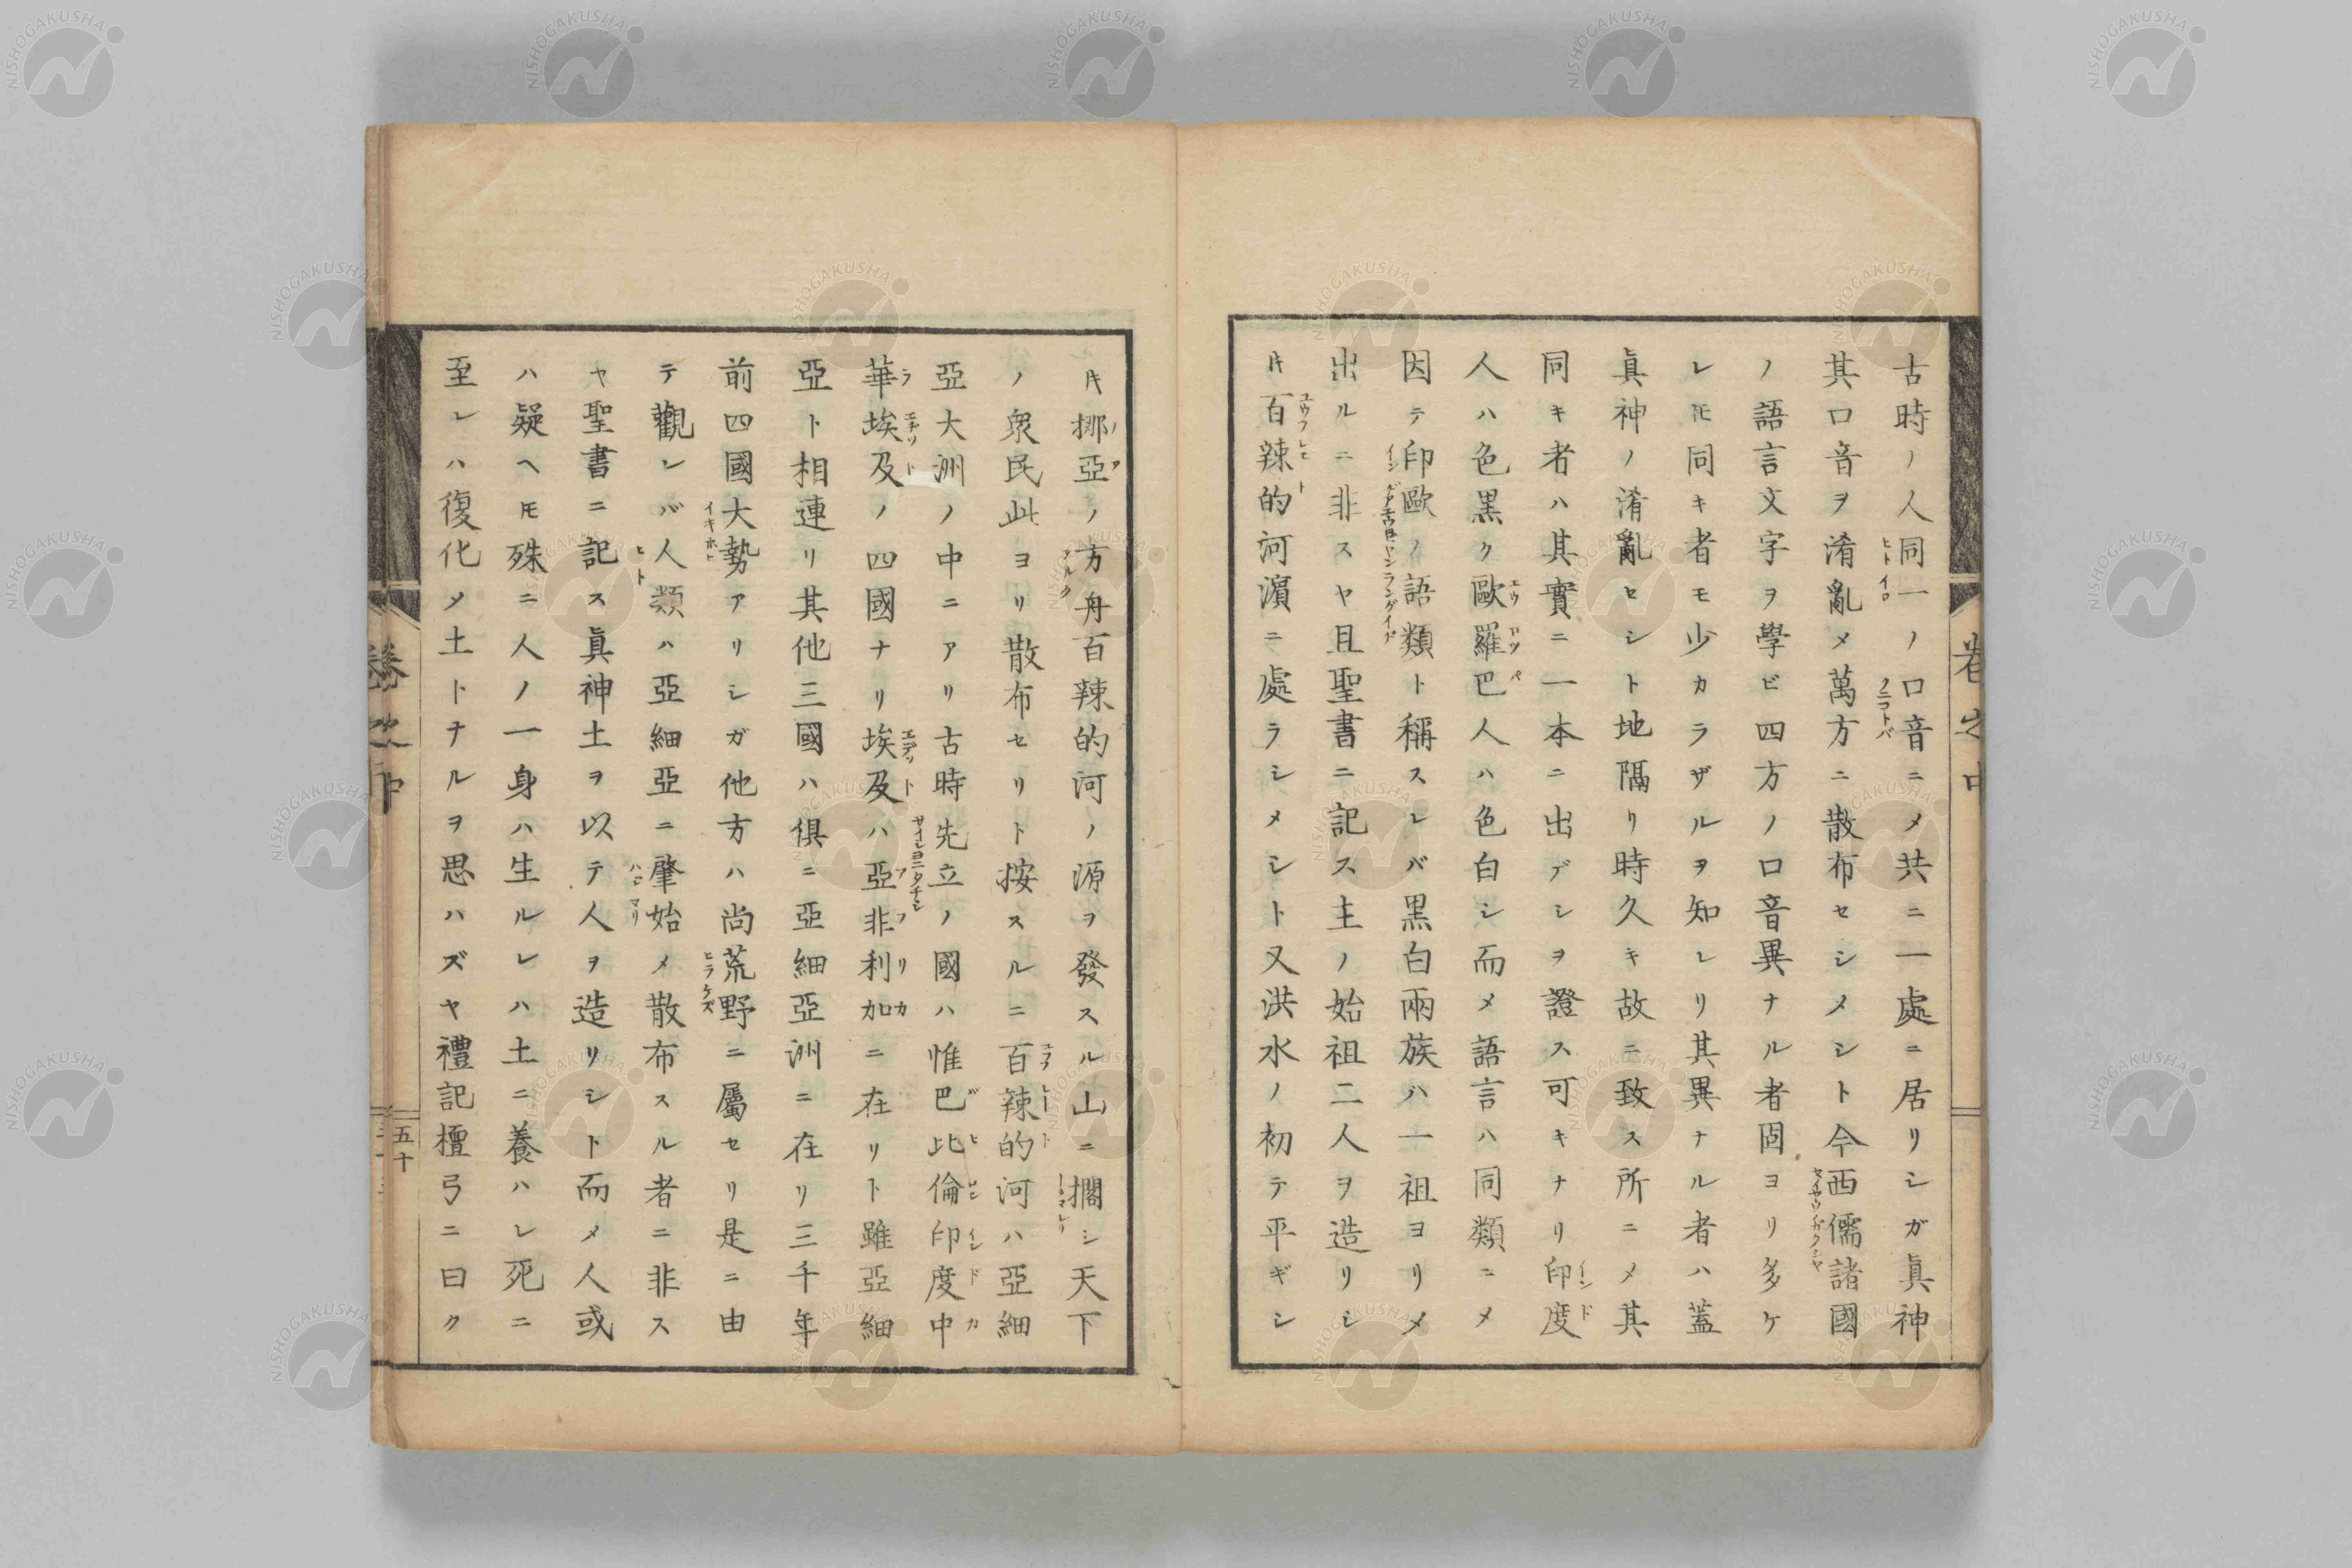 古時ノ人同一ノ口音ニメ共ニ一處ニ居リシガ真神
其口音ヲ淆亂メ萬方ニ散布セシメシト今西儒諸國
ノ語言文字ヲ學ビ四方ノ口音異ナル者固ヨリ多ケ
レ𪜈同キ者モ少カラザルヲ知レリ其異ナル者ハ蓋
真神ノ淆亂セシト地隔リ時久キ故ニ致ス所ニメ其
同キ者ハ其實ニ一本ニ出デシヲ證ス可キナリ印度
人ハ色黒ク歐羅巴人ハ色白シ而メ語言ハ同類ニメ
因テ印歐ノ語類ト稱スレバ黒白兩族ハ一祖ヨリメ
出ルニ非スヤ且聖書ニ記ス主ノ始祖二人ヲ造リシ
片百辣的河濵ニ處ラシメシト又洪水ノ初テ平ギシ
片挪亞ノ方舟百辣的河ノ源ヲ發スル山ニ擱シ天下
ノ衆民此ヨリ散布セリト按スルニ百辣的河ハ亞細
亞大洲ノ中ニアリ古時先立ノ國ハ惟巴比倫印度中
華埃及ノ四國ナリ埃及ハ亞非利加ニ在リト雖亞細
亞ト相連リ其他三國ハ俱ニ亞細亞洲ニ在リ三千年
前四國大勢アリシガ他方ハ尚荒野ニ屬セリ是ニ由
テ觀レバ人類ハ亞細亞ニ肇始メ散布スル者ニ非ス
ヤ聖書ニ記ス真神土ヲ以テ人ヲ造リシト而メ人或
ハ疑ヘ𪜈殊ニ人ノ一身ハ生ルレハ土ニ養ハレ死ニ
至レハ復化メ土トナルヲ思ハズヤ禮記檀弓ニ曰ク
卷之中
五十
NISHOGAKUSHA